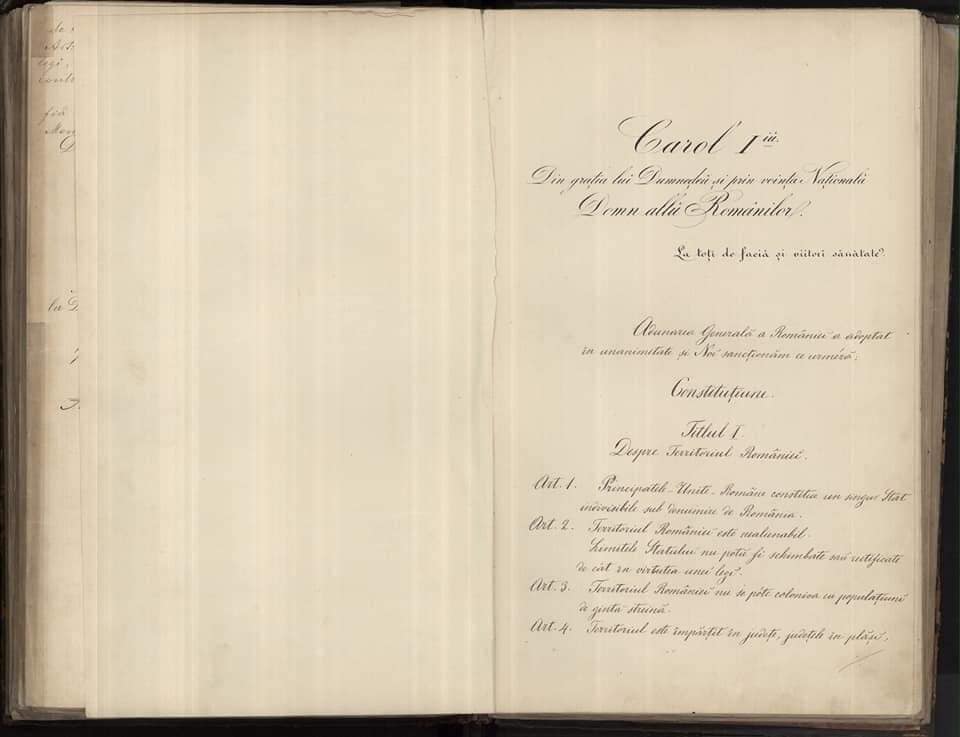 de
legi,
contr
fiă
la D
Carol I iii.
Din grația lui Dumnedeu și prin voința Națională
Domn allŭ Românilor.
La toți de faciă și viitori sănătate.
Adunarea Generală a României a adoptat
în unanimitate și Noi sancționăm ce urméză:
Constituțiune.
Titlul I.
Despre Territoriul României.
Art. 1. Principatele-Unite-Române constituie un singur Stat
indivisibile sub denumire de România.
Art. 2. Territoriul României este nealienabil.
Limitele Statului nu potŭ fi schimbate saŭ rectificate
de cât în virtutea unei legi.
Art. 3. Territoriul României nu se póte colonisa cu populațiuni
de gintă streină.
Art. 4. Territoriul este împărțit în județe, județele în plăși,